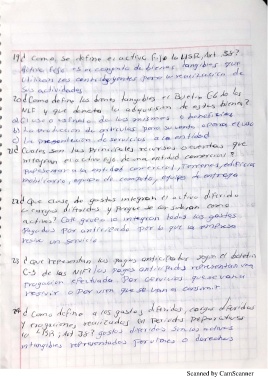 19¿ Como se define el activo fijo la LISR, Art 38?
Activo fijo es el conjunto de bienes tangibles que
utilicen los contribuyentes para la realización de
sus actividades.
20¿ Como define los bienes tangibles el Boletin C6 de las
NIF y que denota la adquisicion de estos bienes?
a) El uso o usufructo de los mismos en beneficio
b) La produccion de articulos para su venta o para el uso
c) La presentacion de servicios a la entidad
21¿ Cuales son los principales recursos o cuentas que
integran el activo fijo de una entidad comercial?
la entidad comercial, Terrenos, edificios
mobiliario, equipo de computo, equipo de entrega
22¿ Que clase de gastos integran el activo diferido
o cargos diferidos y porque se consideran como
activos? Este grupo lo integran todos los gastos
pagados por anticipado por lo que la empresa
recibe un servicio
23¿ Que representan los pagos anticipados según el boletin
C-5 de las NIF? Los pagos anticipados representan una
erogación efectuada por servicios que se van a
recibir o por bienes que se van a consumir
24¿ Como define a los gastos diferidos, cargos diferidos
y erogaciones realizadas en periodos preoperativos
la LISR, Art 38? gastos diferidos son los activos
intangibles representados por bienes o derechos
Scanned by CamScanner